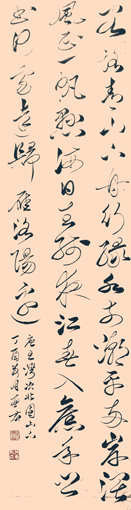 客路青山下舟行綠水前潮平兩岸濶
風正一帆懸海日生殘夜江春入舊年鄉
書何處達歸雁洛陽邊
唐王灣次北固山下
丁酉